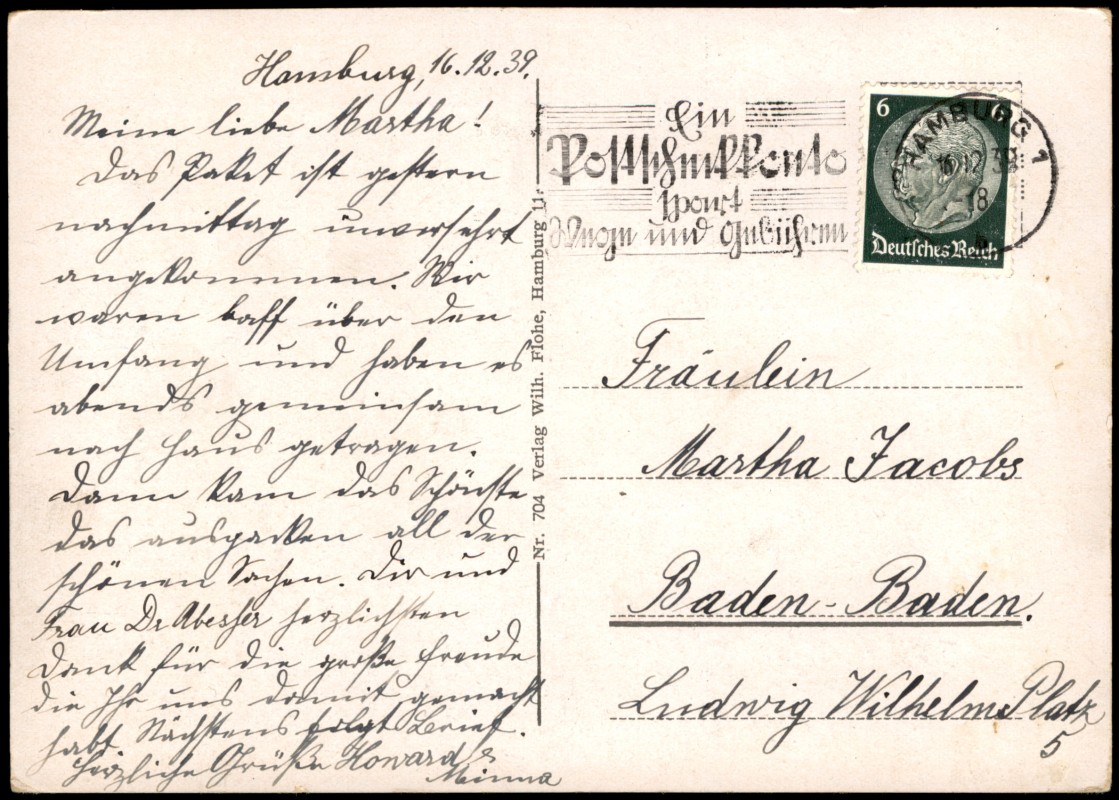 Hamburg, 16.12.39.
Meine liebe Martha!
Das Paket ist gestern
nachmittag unversehrt
angekommen. Wir
waren baff über den
Umfang und haben es
abends gemeinsam
nach Haus getragen.
Dann kam das Schönste
das auspacken all der
schönen Sachen. Dir und
Frau Dr Abesser herzlichsten
Dank für die große Freude
die Ihr uns damit gemacht
habt. Nächstens folgt Brief.
Herzliche Grüße Howard &
Minna
Nr. 704 Verlag Wilh. Flohe, Hamburg 11.
Ein
Postscheckkonto
spart
Wege und Gebühren
HAMBURG 1
16.12.39
18
6 6
Deutsches Reich
Fräulein
Martha Jacobs
Baden-Baden.
Ludwig Wilhelm Platz
5